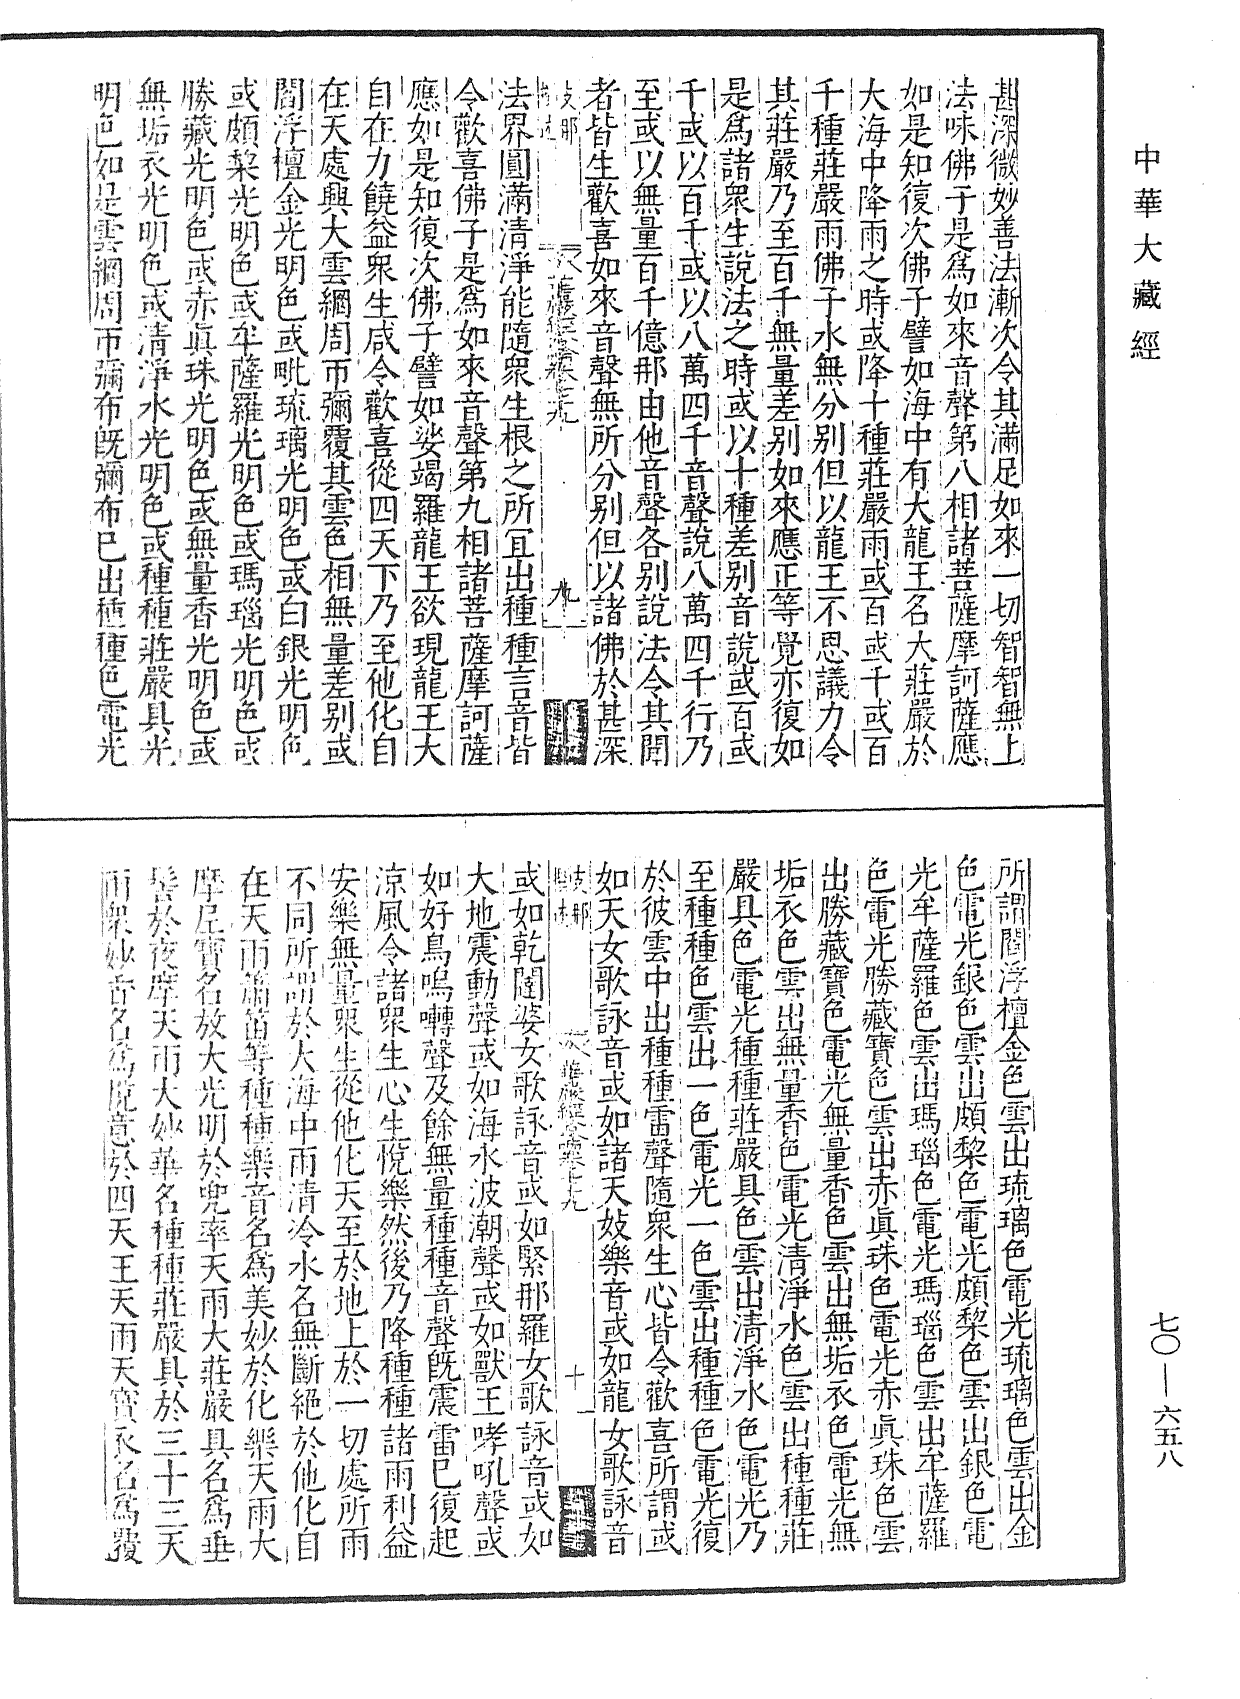 中華大藏經
甚深微妙善法漸次令其滿足如來一切智智無上
法味佛子是爲如來音聲第八相諸菩薩摩訶薩應
如是知復次佛子譬如海中有大龍王名大莊嚴於
大海中降雨之時或降十種莊嚴雨或百或千或百
千種莊嚴雨佛子水無分别但以龍王不思議力令
其莊嚴乃至百千無量差别如來應正等覺亦復如
是爲諸衆生說法之時或以十種差别音說或百或
千或以百千或以八萬四千音聲說八萬四千行乃
至或以無量百千億那由他音聲各别說法令其聞
者皆生歡喜如來音聲無所分别但以諸佛於甚深
華嚴經卷七九
九
法界圓滿清淨能隨衆生根之所宜出種種言音皆
令歡喜佛子是爲如來音聲第九相諸菩薩摩訶薩
應如是知復次佛子譬如娑竭羅龍王欲現龍王大
自在力饒益衆生咸令歡喜從四天下乃至他化自
在天處興大雲網周帀彌覆其雲色相無量差别或
閻浮檀金光明色或毗琉璃光明色或白銀光明色
或頗棃光明色或牟薩羅光明色或瑪瑙光明色或
勝藏光明色或赤眞珠光明色或無量香光明色或
無垢衣光明色或清淨水光明色或種種莊嚴具光
明色如是雲網周帀彌布旣彌布已出種種色電光
所謂閻浮檀金色雲出琉璃色電光琉璃色雲出金
色電光銀色雲出頗棃色電光頗棃色雲出銀色電
光牟薩羅色雲出瑪瑙色電光瑪瑙色雲出牟薩羅
色電光勝藏寶色雲出赤眞珠色電光赤眞珠色雲
出勝藏寶色電光無量香色雲出無垢衣色電光無
垢衣色雲出無量香色電光清淨水色雲出種種莊
嚴具色電光種種莊嚴具色雲出清淨水色電光乃
至種種色雲出一色電光一色雲出種種色電光復
於彼雲中出種種雷聲隨衆生心皆令歡喜所謂或
如天女歌詠音或如諸天妓樂音或如龍女歌詠音
華嚴經卷七九
十
或如乾闥婆女歌詠音或如緊那羅女歌詠音或如
大地震動聲或如海水波潮聲或如獸王哮吼聲或
如好鳥鳴囀聲及餘無量種種音聲旣震雷已復起
涼風令諸衆生心生悅樂然後乃降種種諸雨利益
安樂無量衆生從他化天至於地上於一切處所雨
不同所謂於大海中雨清冷水名無斷絕於他化自
在天雨簫笛等種種樂音名爲美妙於化樂天雨大
摩尼寶名放大光明於兜率天雨大莊嚴具名爲垂
髻於夜摩天雨大妙華名種種莊嚴具於三十三天
雨衆妙香名爲悅意於四天王天雨天寶衣名爲覆
七〇—六五八